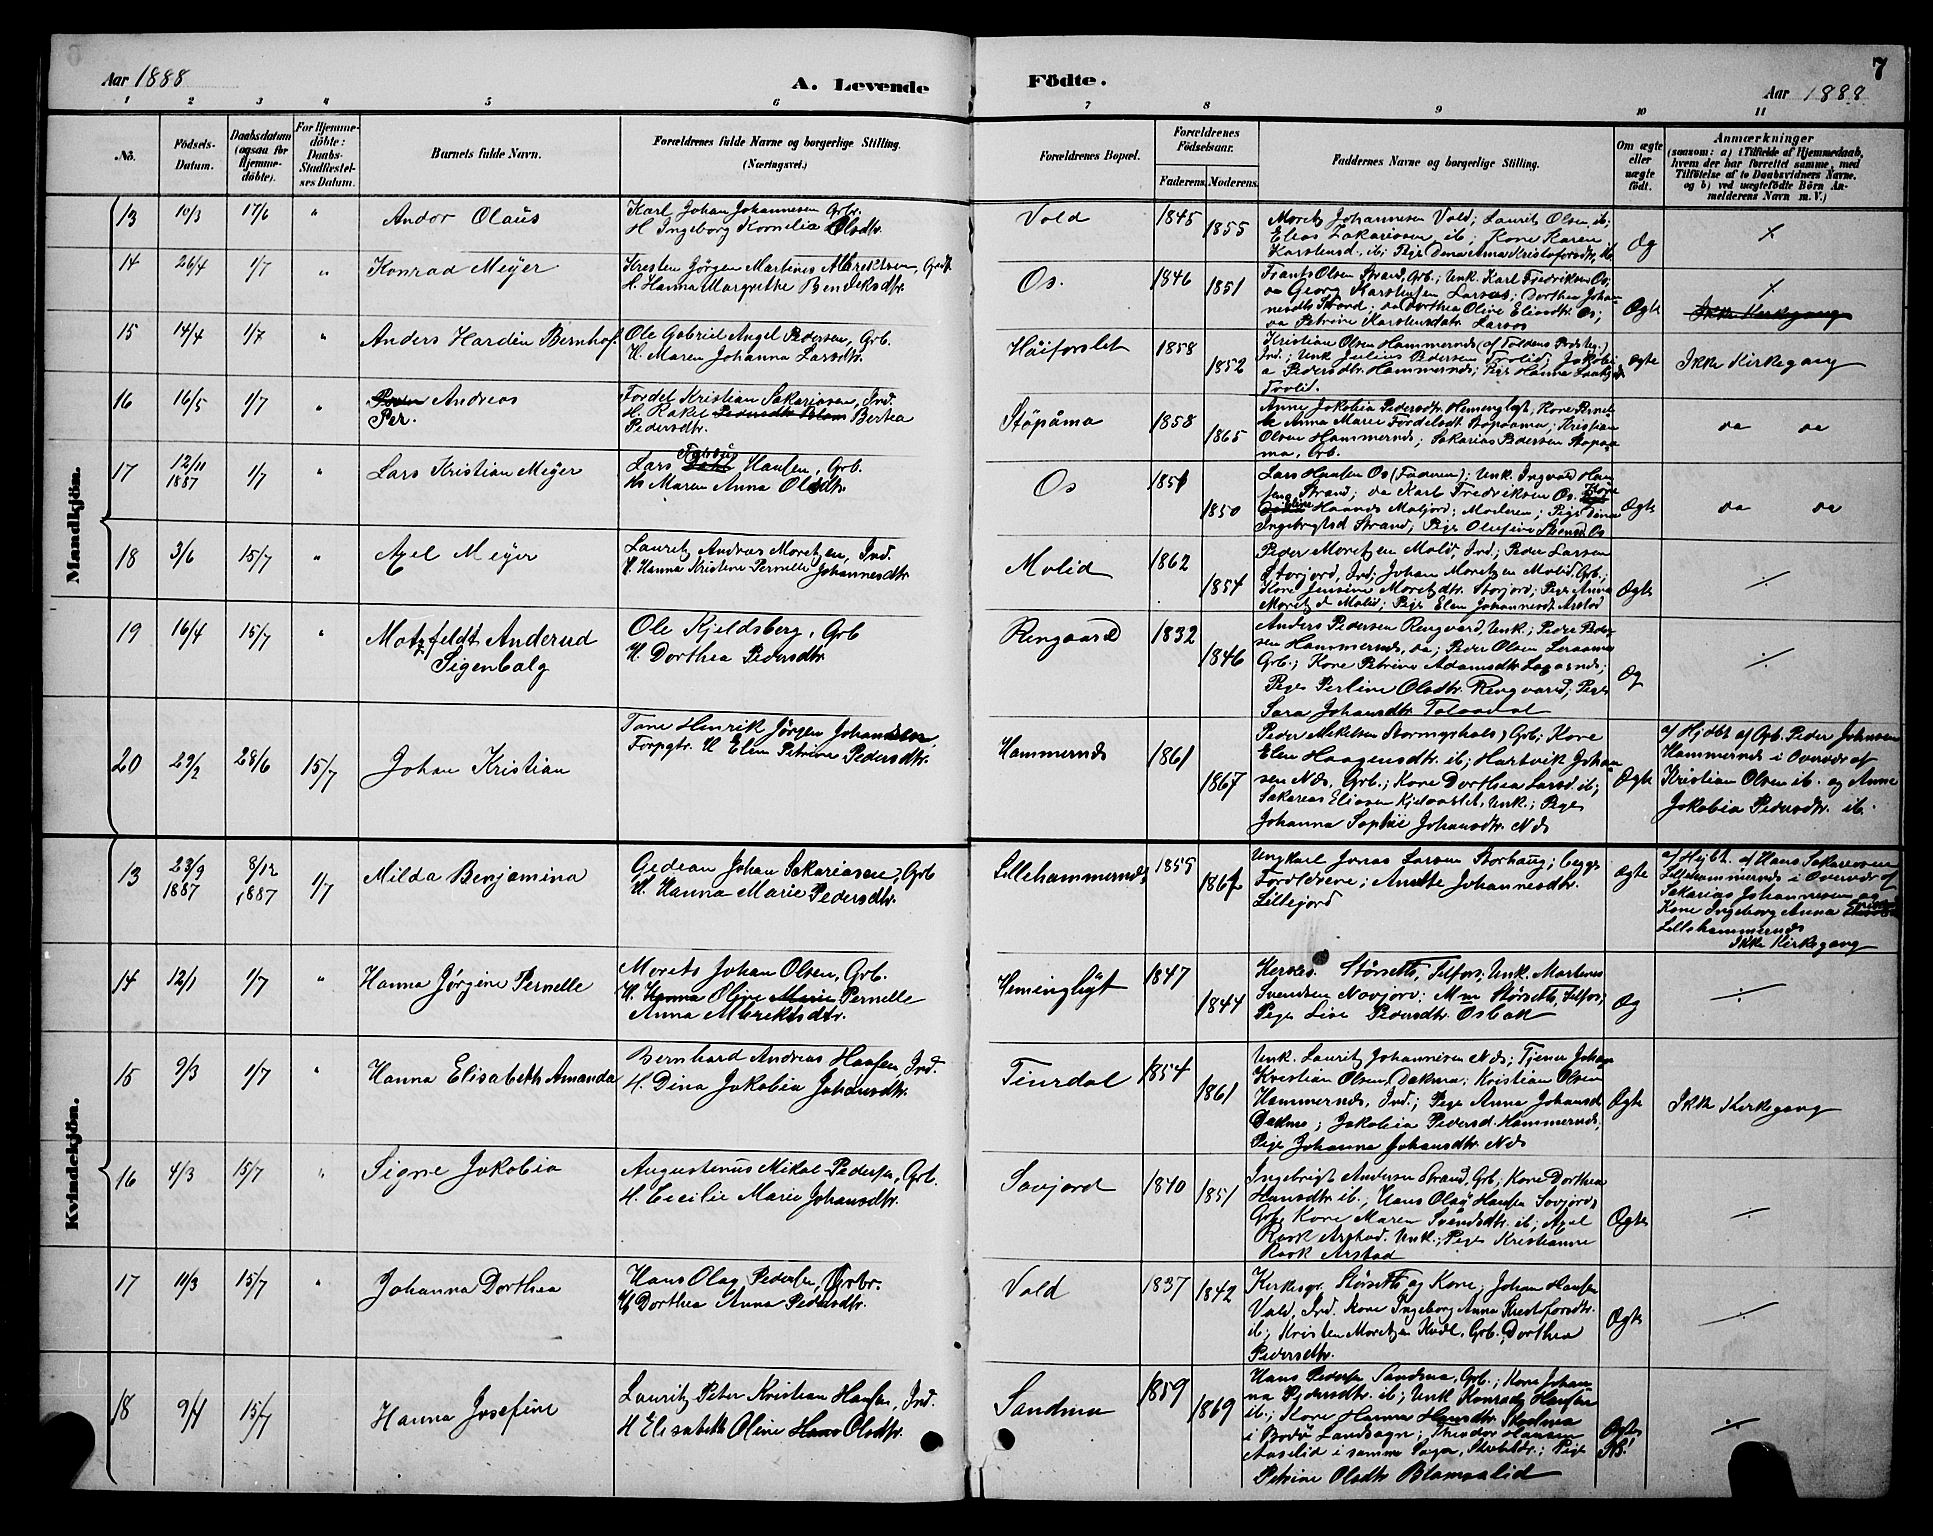 Aar 1888
A. Levende
Födte.
7
Aar 1888
1 2 3 4 5 6 7 8 9 10 11
No.
Födsels-
Datum.
Daabsdatum
(ogsaa for
Hjemme-
döbte).
For Hjemme-
döbte:
Daabs-
Stadfæstel-
ses Datum.
Barnets fulde Navn.
Forældrenes fulde Navne og borgerlige Stilling.
(Næringsvei.)
Forældrenes Bopæl.
Forældrenes
Födselsaar.
Faderens.
Moderens.
Faddernes Navne og borgerlige Stilling.
Om ægte
eller
uægte
födt.
Anmærkninger
(saasom: a) i Tilfælde af Hjemmedaab,
hvem der har forrettet samme, med
Tilföielse af to Daabsvidners Navne.
og b) ved uægtefödte Börn An-
melderens Navn m. V.)
Mandkjön.
13 10/3 17/6 " Andor Olaus
Karl Johan Johannesen Grbr.
H. Ingeborg Kornelia Olsdtr.
Vold 1845 1855
Moritz Johannesen Vold; Lauritz Olsen ib;
Elias Zakariassen ib; Kone Karen
Karstensd. ib; Pige Dina Anna Kristofersdtr, ib.
Æg
14 26/4 1/7 " Konrad Meyer
Kresten Jörgen Martines
H. Hanna Margrethe Bendiksdtr.
Os. 1846 1851
Frants Olsen Strand, Grb.; Unk. Karl Fredriksen Os;
Georg Karstensen Larsos; Dorthea Joha-
nesdtr Strand; da Dorthea Olive Eliasdtr Os;
da Petrine Karstensdtr. Larsos
Ægte
Ikke Kirkegang
15 14/4 1/7 " Anders Hardin Bernhof
Ole Gabriel Angel Pedersen, Grb.
H. Maren Johanna Larsdtr.
Höiforslet 1858 1852
Kristian Olsen Hammernæs (af Foldens Prdstg.)
Ind.; Unk Julius Pedersen Trolid; Jakobi-
a Pedersdtr. Hammernæs; Pige Hanna
Trolid.
Ægte
Ikke Kirkegang
16 16/5 1/7 " Andreas
Per.
Fordel Kristian Sakariasen, Ind.
H. Rakel Bertea
Pedersdtr.
Stöpåma 1858 1865
Anne Jokobia Pedersdtr. Hemingligt, Kone Pernel-
le Anna Marie Fordelsdt Stöpaama; Kristian
Olsen Hammernæs; Sakarias Pedersen Stopaa-
ma, Grb.
da da
17 12/11
1887 1/7 " Lars Kristian Meyer
Lars Hansen, Grb.
H. Maren Anna Olsdtr.
Os 1851 1850
Lars Hansen Os (Faderen); Unk. Ingvald Han-
sen Strand; da Karl Fredriksen Os. Kone
Haands Moljord; Moderen; Pige Dina
Ingebrigtsd Strand; Pige Olufine
Ægte
da da
18 3/6 15/7 " Axel Meyer
Lauritz Andreas Moritzen, Ind.
H. Hanna Kristine Pernelle Johannesdtr.
Molid 1862 1854
Peder Moritzen Molid, Ind; Peder Larsen
Storjord, Ind; Johan Moritzen Molid, Grb;
Kone Jensine Moritzdtr. Storjord; Pige Anna
Moritzd Molid; Pige Elen Johannesdt. Arstad
Ægte
19 16/4 15/7 " Motzfeldt Anderud
Sigenbalg
Ole Kjeldsberg, Grb
H. Dorthea Pedersdtr.
Rengaard 1832 1846
Anders Pedersen Rengaard, Unk.; Peder Peder-
sen Hammernæs, da; Peder Olsen Leraama
Grb.; Kone Petrine Adamsdtr. Sagasnæs;
Pige Perline Olsdtr. Rengaard; Pige
Sara Johansdtr Tolaadal
Æg
20 29/2 28/6 15/7 Johan Kristian
Tone Henrik Jörgen Johansen
Forpgtr. H Elen Petrine Pedersdtr.
Hammernæs 1861 1867
Peder Mikelsen Stormyrhals, Grb; Kone
Elen Haagensdtr. ib; Hartvik Johan-
sen Næs, Grb.; Kone Dorthea Larsd. ib;
Sakarias Eliasen Kjelaastet, Unk.; Pige
Johanna Sophie Johansdtr. Næs
Ægte
af Hjdbt. af Grb. Peder Johnsen
Hammernæs i Overvær af
Kristian Olsen ib. og Anne
Jokobia Pedersdtr. ib.
Kvindekjön.
13 23/9
1887 8/12
1887 1/7 Milda Benjamina
Gedean Johan Sakariasen, Grb
H. Hanna Marie Pedersdtr.
Lillehammernæs 1855
Ungkarl Jonas Larsen Storhaug; begge
Forældrene; Anette Johannesdtr.
Lillejord
Ægte
af Hjbt. af Hans Sakariassen
Lillehammernæs i Overvær af
Sakarias Johannesen og
Kone Ingeborg Anna
Lillehammernæs
Ikke Kirkegang
14 12/1 1/7 " Hanna Jørgine Pernelle
Morits Johan Olsen, Grb.
H. Hanna Olive Marie Pernelle
Anna
Hemingligt 1847 1844
Störsetts, Silfors; Unk. Martenus
Svendsen Novjord; Störsetts, Silfors;
Pige Lise Pedersdtr. Osbak
Æg
15 9/3 1/7 " Hanna Elisabeth Amanda
Bernhard Andreas Hansen, Ind.
H. Dina Jakobia Johansdtr.
Tinrdal 1854 1861
Unk. Lauritz Johannesen Næs; Tjener Johan
Kristian Olsen, Dakma; Kristian Olsen
Hammernæs, Ind.; Pige Anna Johansd.
Dakma; Jakobia Pedersd. Hammernæs,
Pige Johanna Johansdtr. Næs
Ægte
Ikke Kirkegang
16 4/3 15/7 " Signe Jakobia
Augustenus Mikal Pedersen, Grb.
H. Cecilie Marie Johansdtr.
Sovjord 1840 1851
Ingebrigt Andersen Strand, Grb; Kone Dorthea
Hansdtr. ib.; Hans Olag Hansen Sovjord,
Grb; Kone Maren Svendsdtr. ib; Axel
Rask Arstad. Unk.; Pige Kristianne
Rask Arstad
Ægte
17 11/3 15/7 " Johanna Dorthea
Hans Olag Pedersen, Grbr.
H. Dorthea Anna Pedersdtr.
Vold 1837 1842
Kirkesgr. Störsett og Kone; Johan Hansen
Vald, Ind. Kone Ingeborg Anna Kristofersdtr.
ib; Kristen Moritzen Kvål, Grb. Dorthea
Pedersdtr.
Ægte
18 9/4 15/7 Hanna Josefine
Lauritz Peter Kristian Hansen, Ind.
H Elisabeth Oline Hans Olsdtr.
Sandma 1859 1869
Hans Pedersen Sandma, Grb.; Kone Johan-
na Pedersdtr. ib; Unk Konrad Hansen
ib; Kone Hanna Hansdtr. Skodma
i Bodö Landsogn; Theodor Hansen
Aaselid i samme Sogn, Skoleldr; Pige
Petrine Olsdtr Blamoolid
Ægte